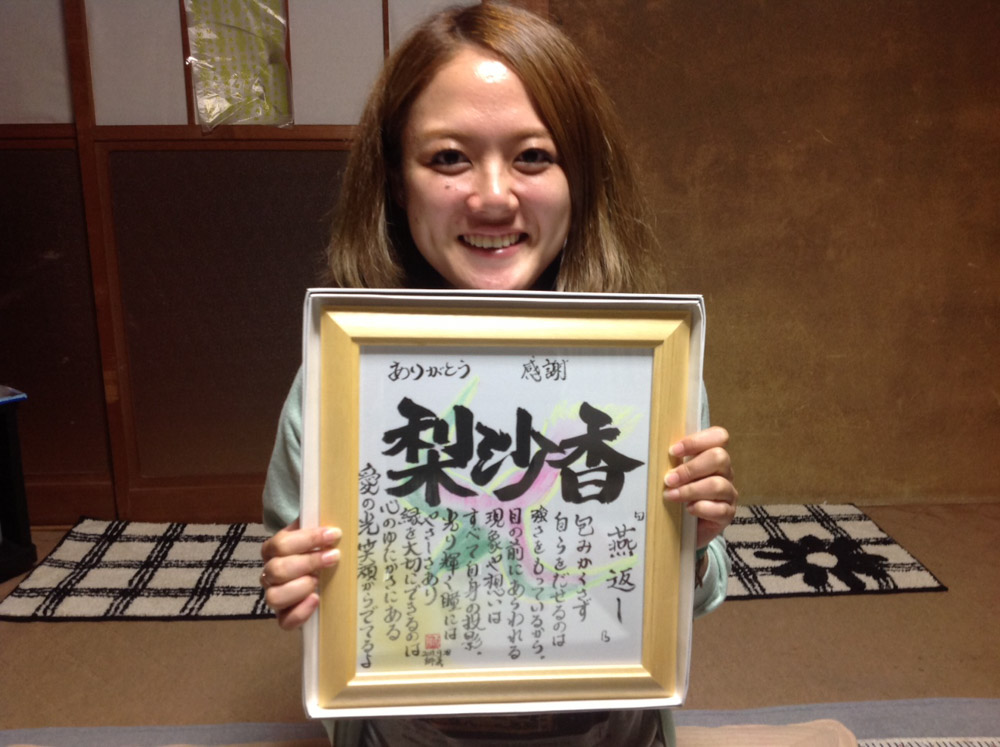 ありがとう
感謝
梨沙香
燕返し
包みかくさず
自らをだせるのは
強さをもっているから。
目の前にあらわれる
現象や想いは
すべて自身の投影。
光り輝く瞳には
やさしさあり
縁を大切にできるのは
心のゆたかさにある
愛の光 笑顔からでてるよ